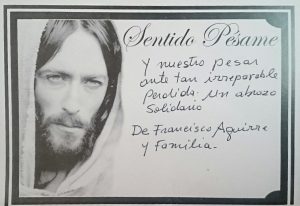 Sentido Pésame
Y nuestro pesar
ante tan irreparable
perdida. Un abrazo
Solidario
De Francisco Aguirre
y Familia.